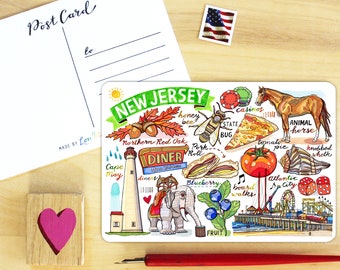 Post Card
to
MADE BY
NEW JERSEY
casinos
honey
bee
STATE
BUG
ANIMAL
horse
Northern Red Oak
Pork
Roll
tomato
pie
knobbed
whelk
Cape
May
DINER
diners
Blueberry
board
walks
Atlantic
City
FRUIT